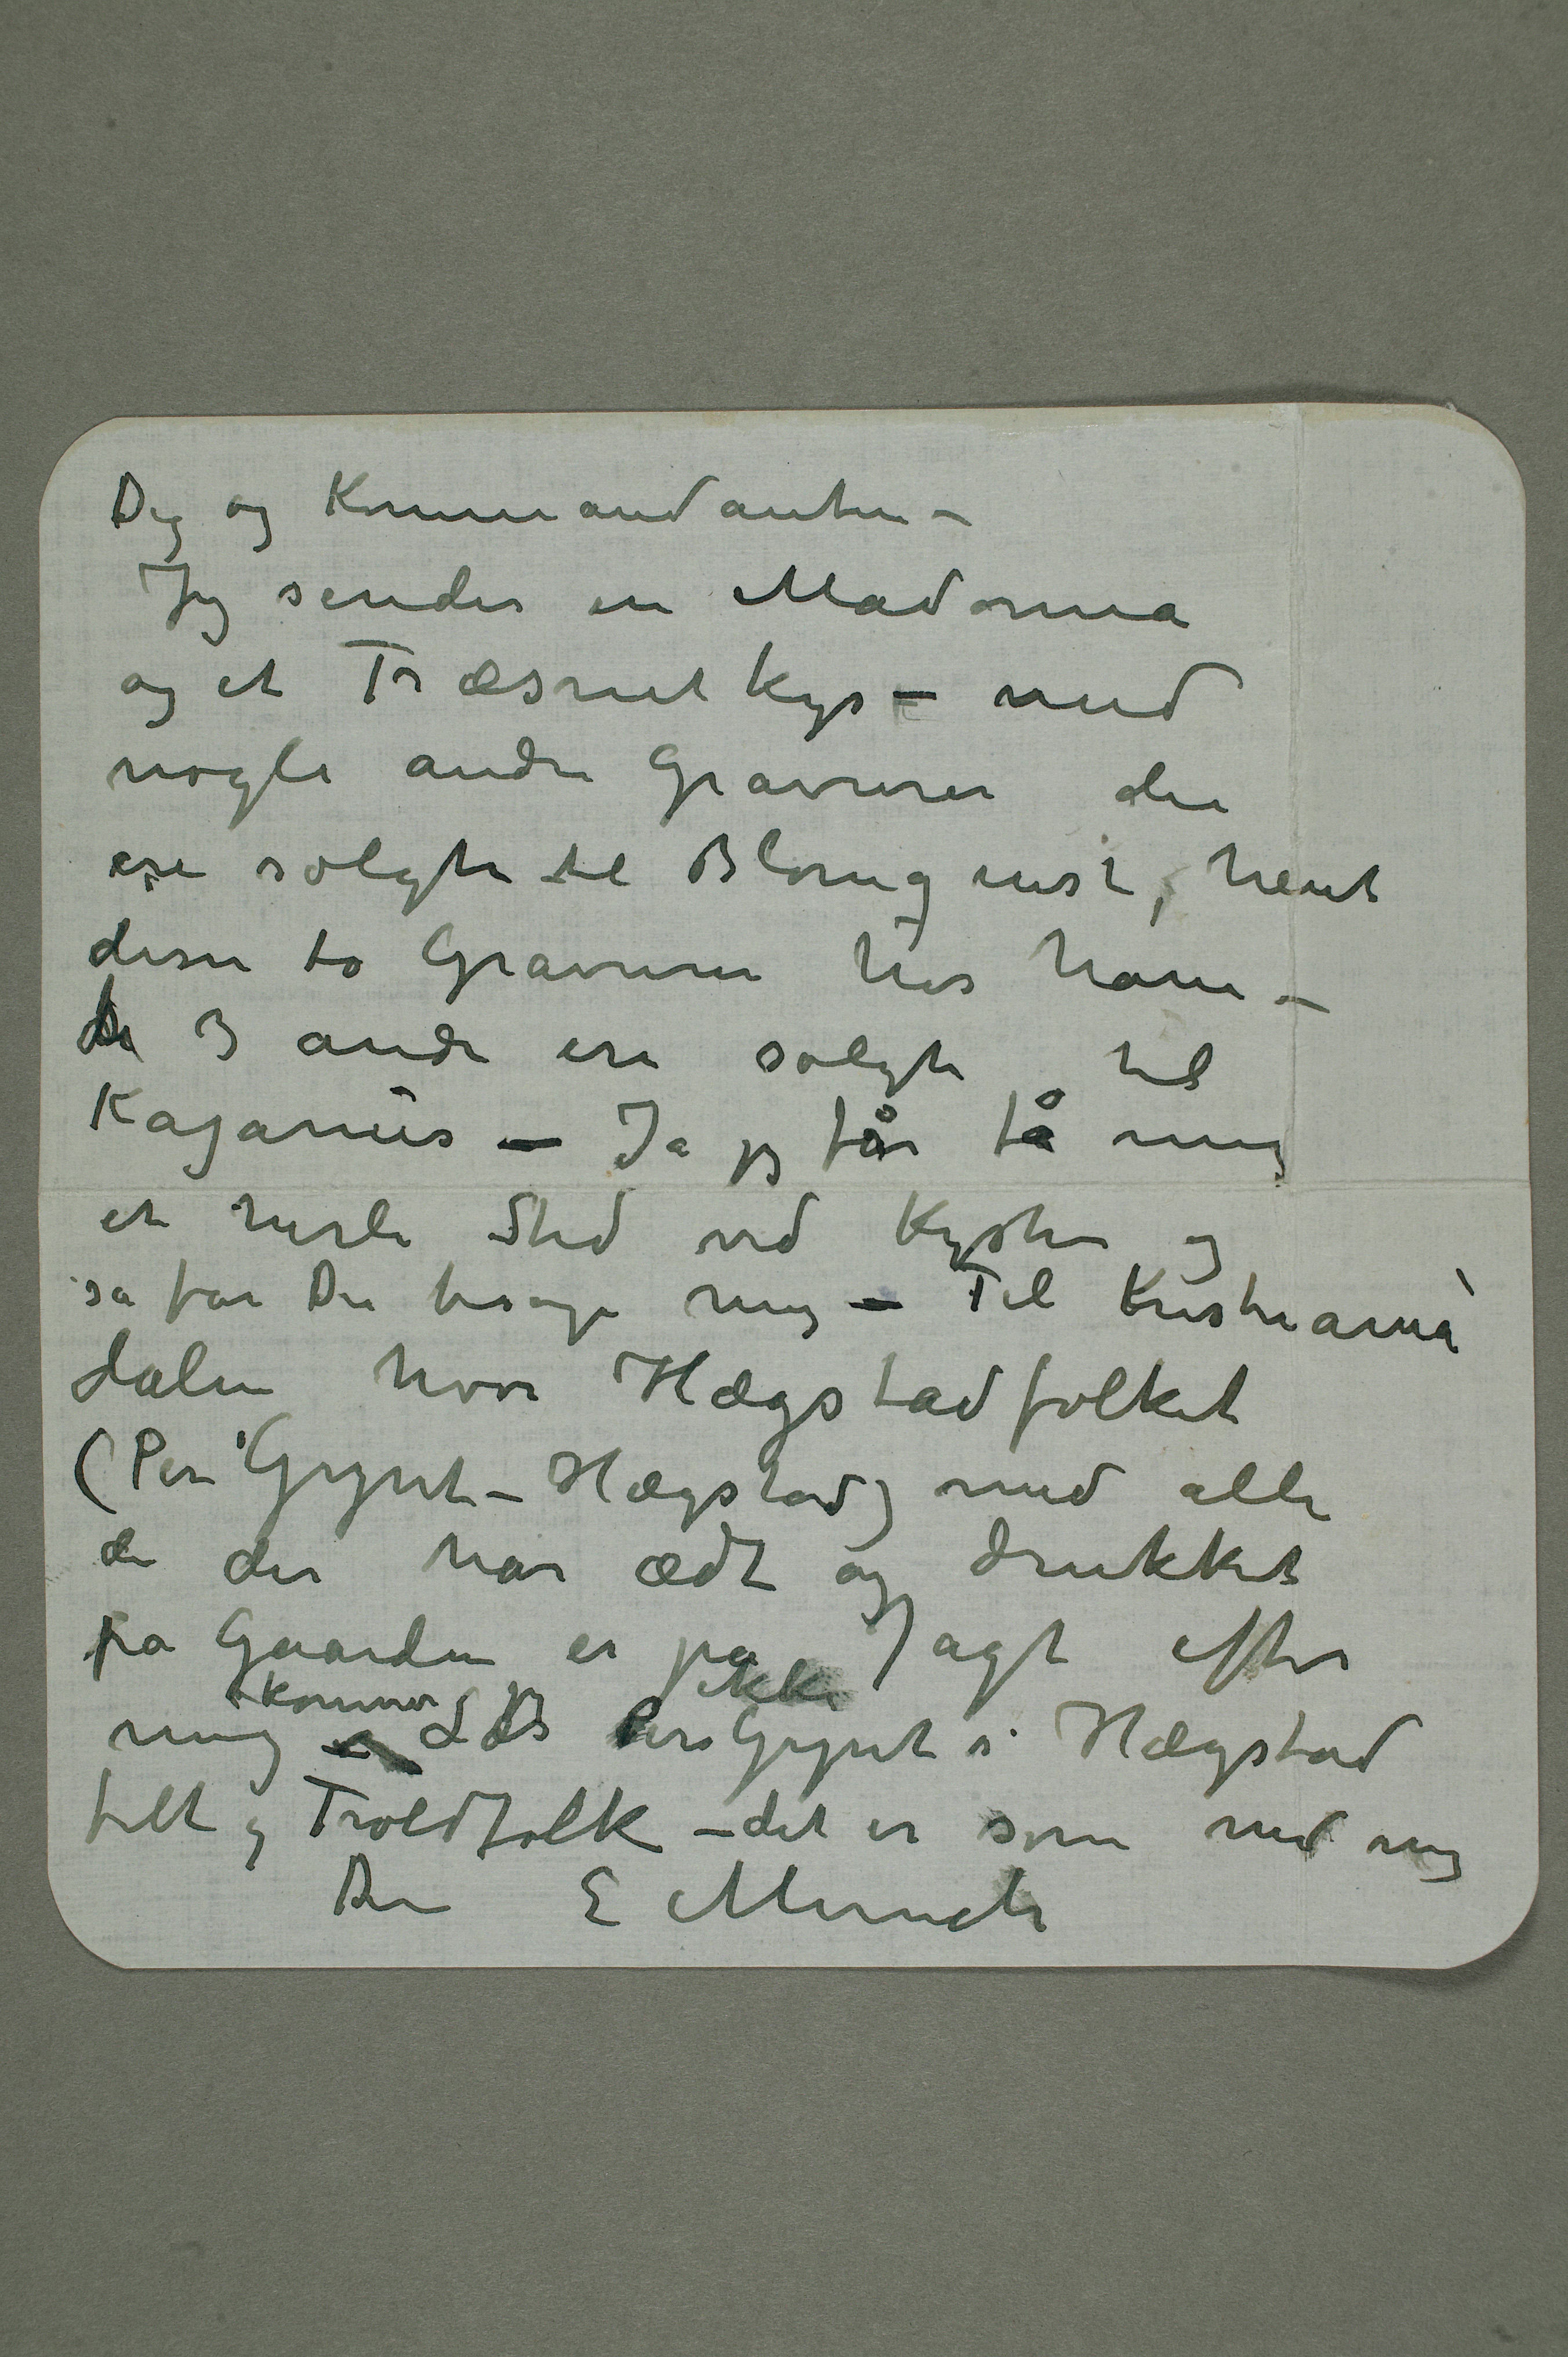 Dig og Kommandanten –
Jeg sender en Madonna
og et Træsnit kys – med
nogle andre Gravurer der
ere solgte til Blomqvist, hent
disse to Gravurer hos ham –
de 3 andre ere solgte til
Kajanus – Ja jeg får få mig
et herli Sted ved Kysten og
så får Du besøge mig – Til Kristiania
dalen hvor Hægstadfolket
(Per Gynt – Hægstad) med alle
de der har ædt og drukket
fra Gaarden er på Jagt efter
mig – kommer jeg ikke
Læs Per Gynt i Hægstad
felt og Troldfolk – det er som med mig
Din E Munch